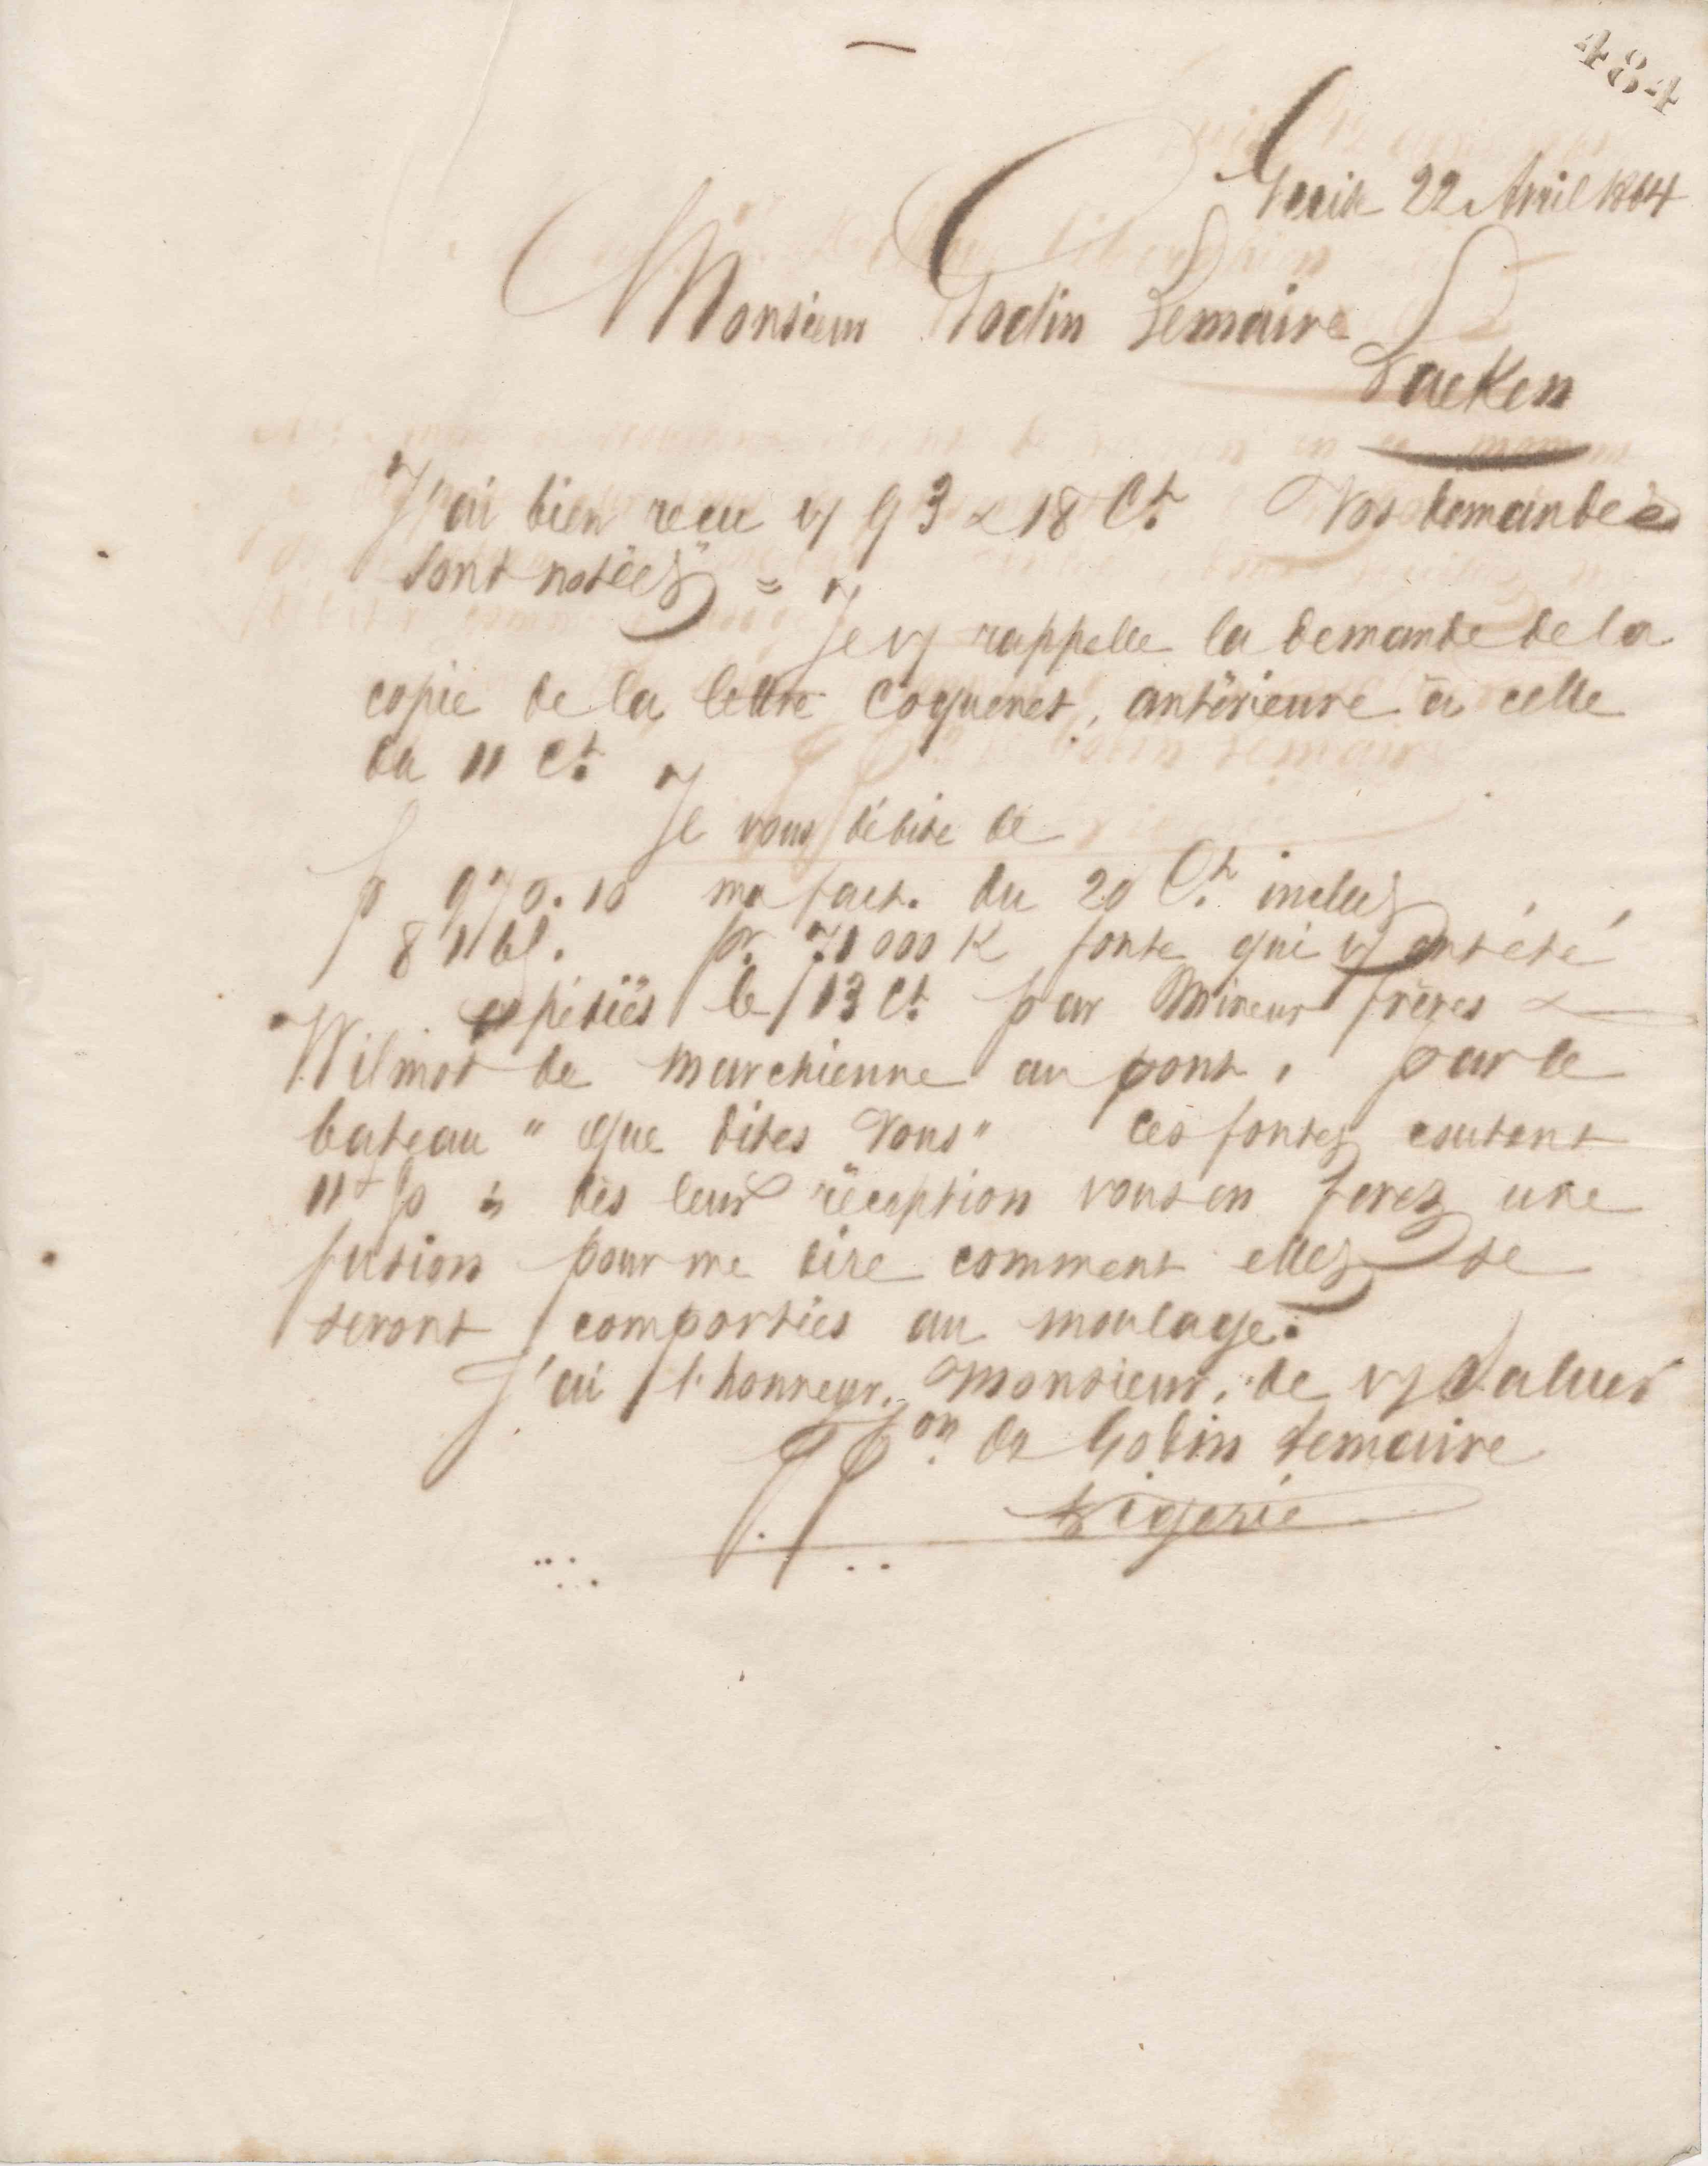 484
Guise 22 Avril 1864
Monsieur Godin Lemaire
Laeken
J'ai bien reçu vs 93 & 18 Ct. Vos demandes
sont notées =
Je vs rappelle la demande de la
copie de la lettre Coquenet, antérieure à celle
du 11 Ct.
Je vous débite de
f 970.10 ma fact. du 20 Ct. inclus
pr. 71000 K fonte qui vs ont été
expédiés le 13 Ct. par Mineur frères &
Wilmot de Marchienne au pont, par le
bateau "Que dites Vous" Ces fontes coutent
11 f dès leur réception vous en ferez une
fusion pour me dire comment elles se
seront comportées au moulage.
J'ai l'honneur, Monsieur, de vs Saluer
PPon. de Godin Lemaire